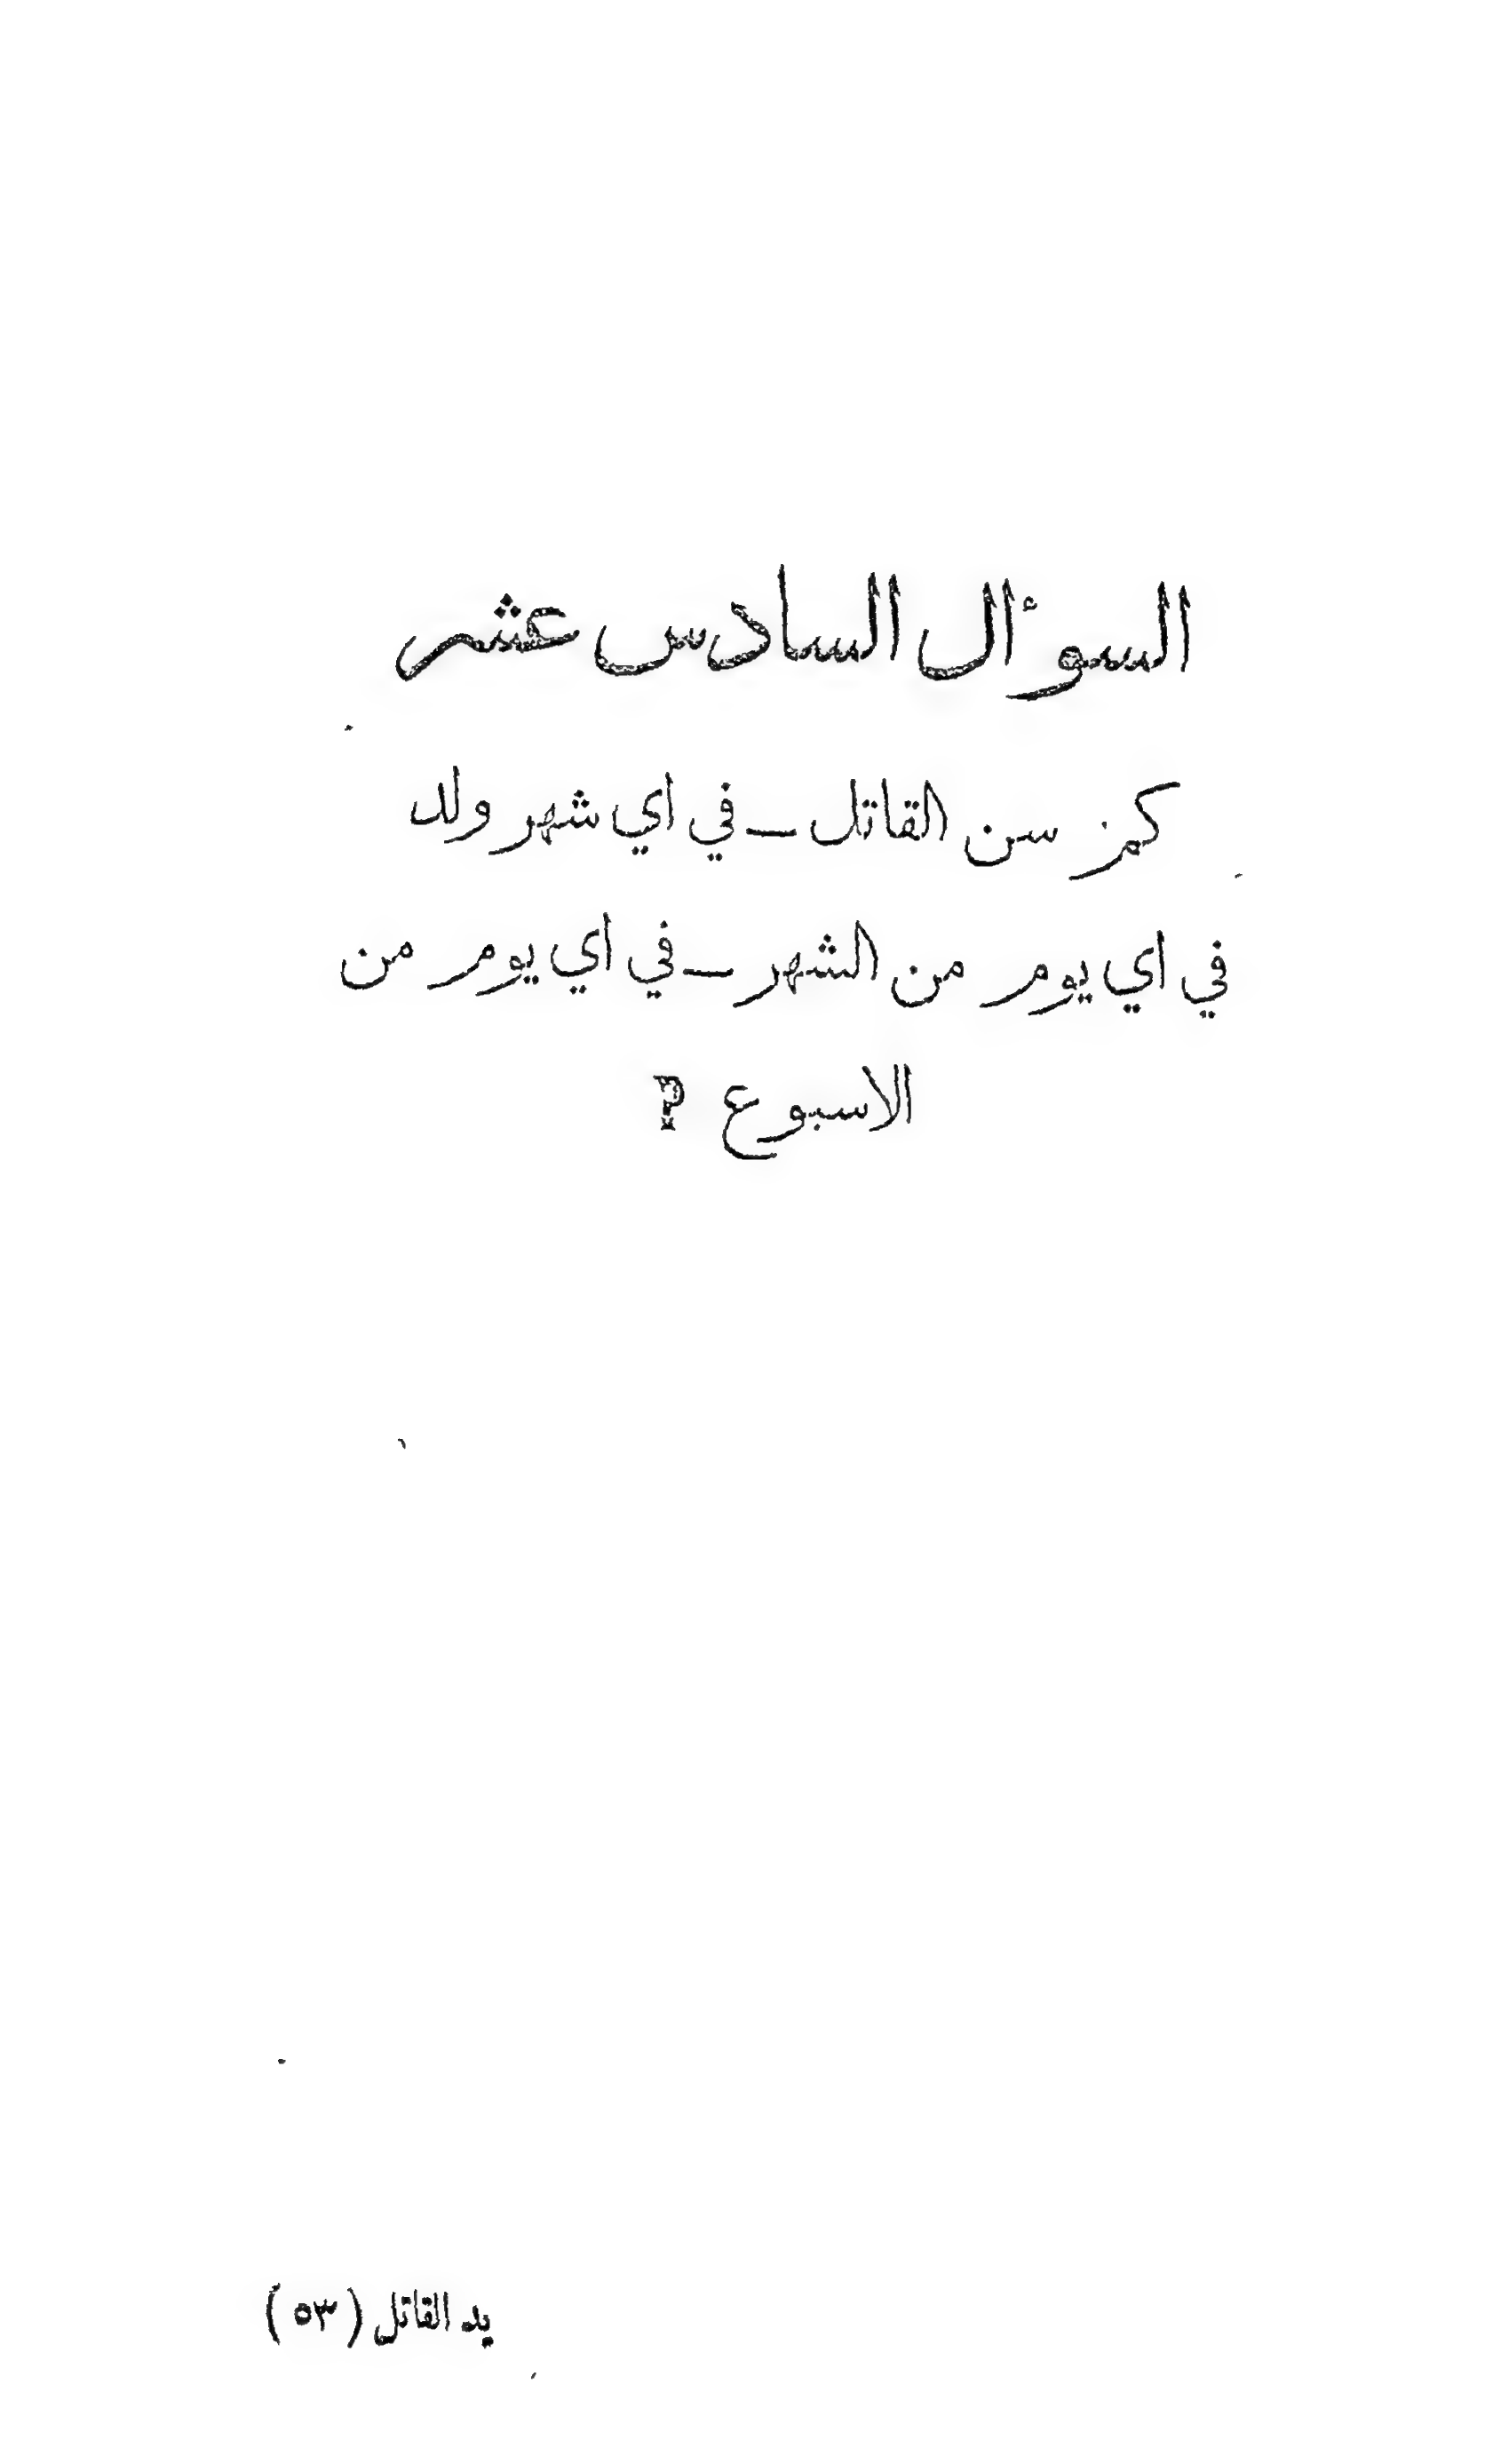 السوأل السادس عشر
كم سن القاتل — في اي شهر ولد
في اي يوم من الشهر — في اي يوم من
الاسبوع ؟
يد القاتل ( ٥٣ )